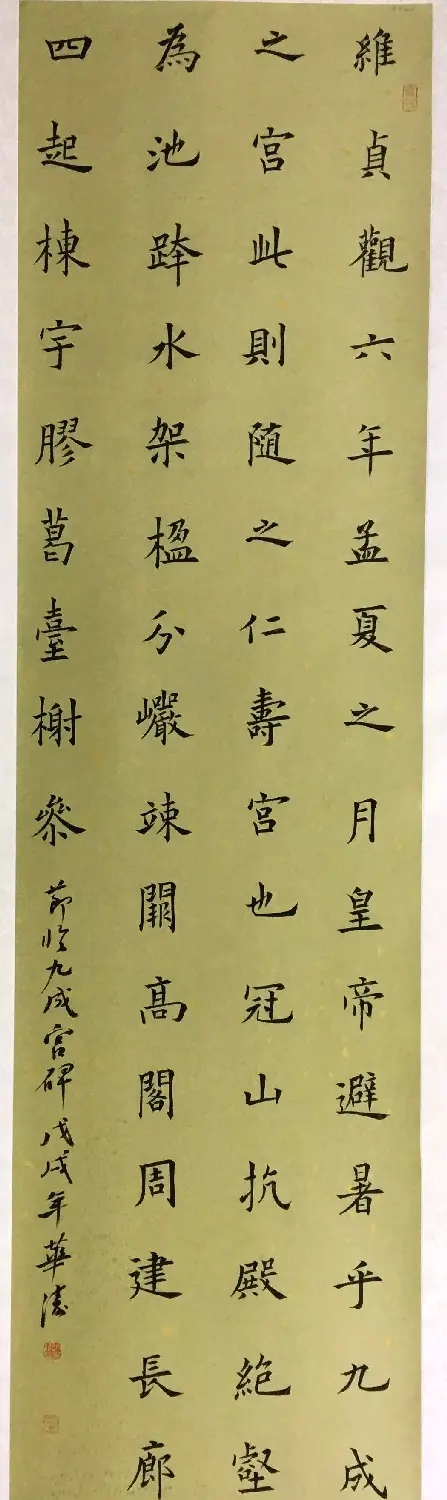 維貞觀六年孟夏之月皇帝避暑乎九成
之宮此則随之仁壽宮也冠山抗殿絕壑
為池跨水架楹分巖竦闕高閣周建長廊
四起棟宇膠葛臺榭叅
節臨九成宮碑戊戌年華濤